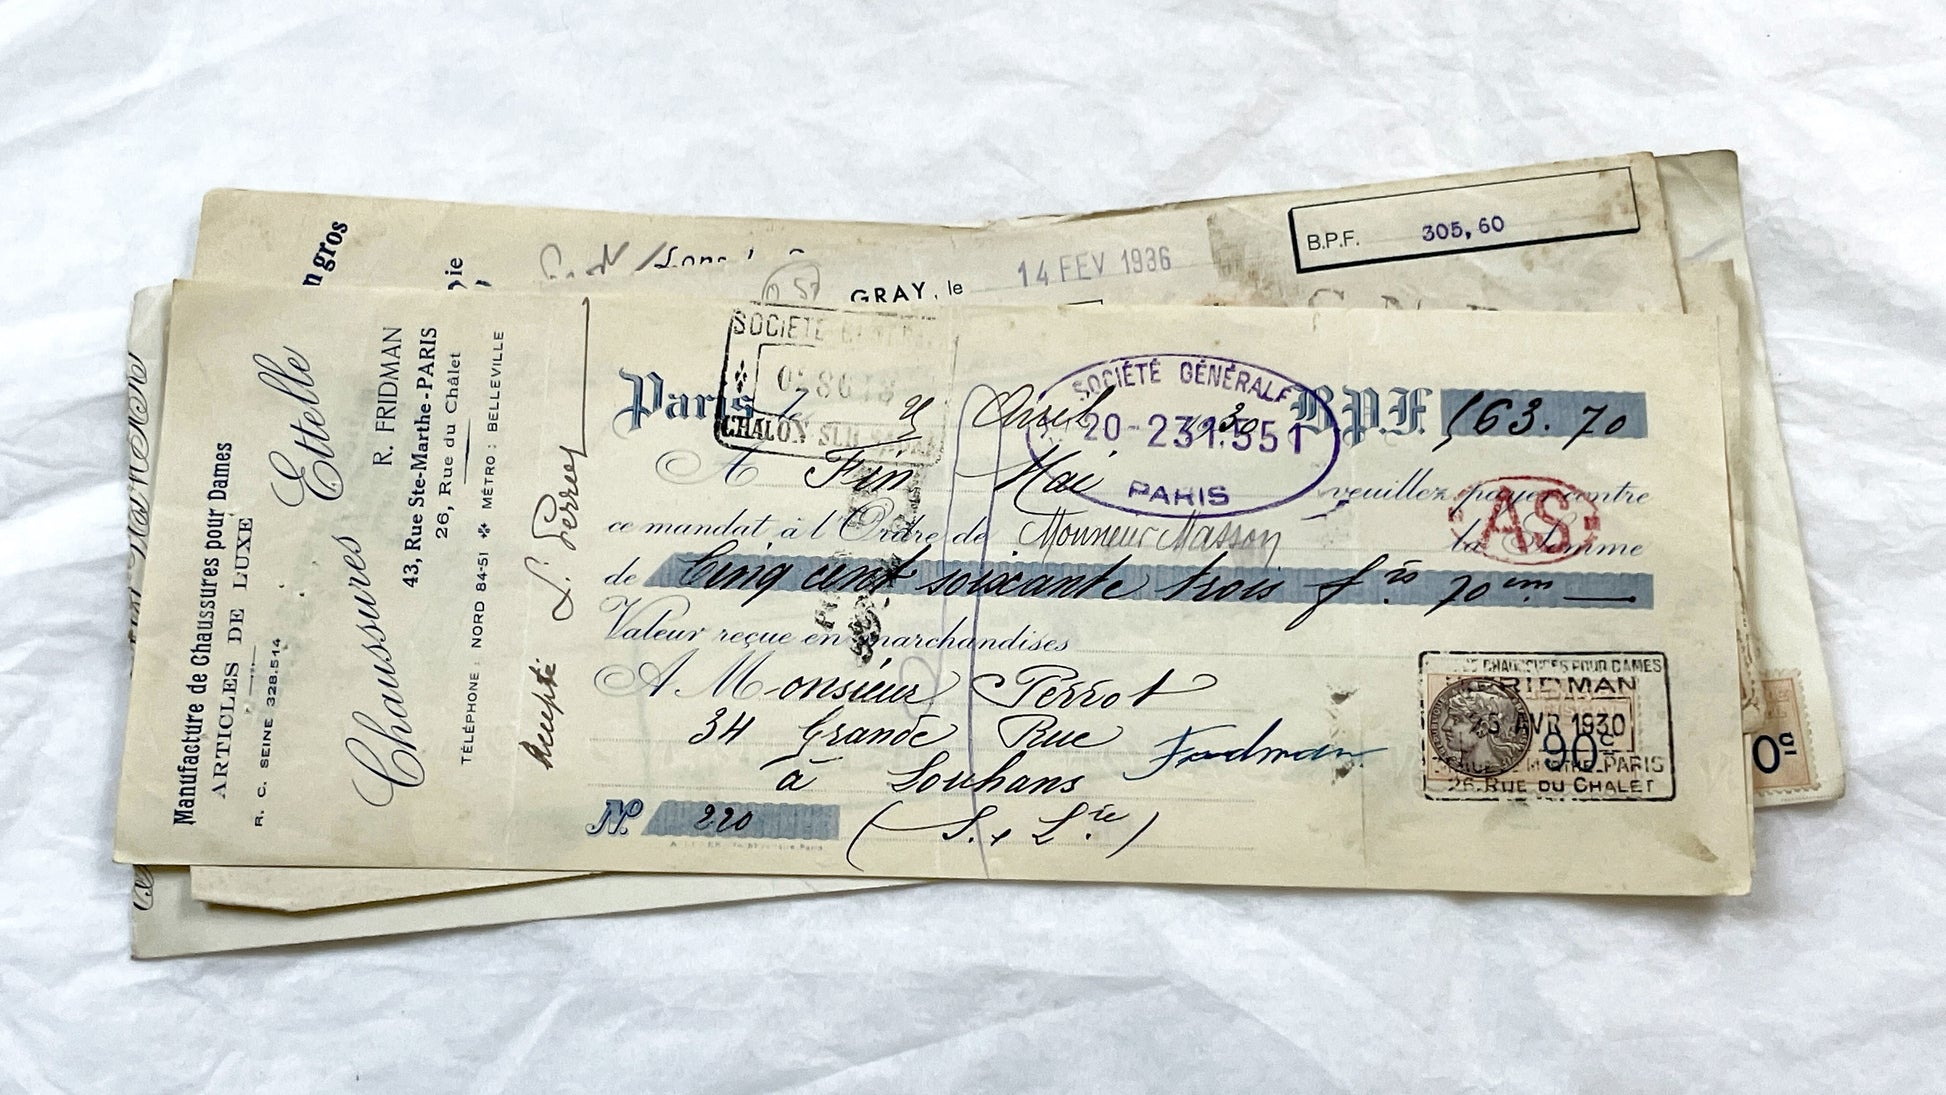 n gros
GRAY, le 14 FEV 1936
B.P.F. 305,60
Manufacture de Chaussures pour Dames
ARTICLES DE LUXE
R. C. SEINE 328.514
Chaussures Ettelle
R. FRIDMAN
43, Rue Ste-Marthe-PARIS
26, Rue du Châlet
TÉLÉPHONE: NORD 84-51 MÉTRO: BELLEVILLE
Accepté
SOCIETE
CHALON SUR
SOCIÉTÉ GÉNÉRALE
20-231.551
PARIS
Paris, 25 Avril 1930 B.P.F. 563.70
A Fin Mai veuillez payer contre
AS
ce mandat à l'Ordre de Monsieur Masson la Somme
de Cinq cent soixante trois frs 70 cm
Valeur reçue en marchandises
A Monsieur Perrot
34 Grande Rue
Fridman
à Louhans
(S. & L.re)
No 220
CHAUSSURES POUR DAMES
FRIDMAN
25 AVR 1930
90c
PARIS
26, RUE DU CHALET
0c